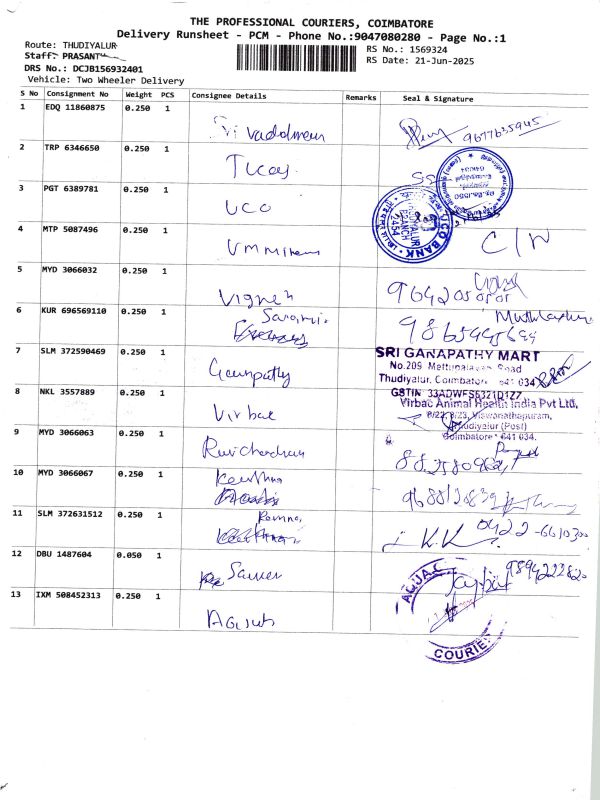 THE PROFESSIONAL COURIERS, COIMBATORE
Delivery Runsheet - PCM - Phone No.:9047080280 - Page No.:1
Route: THUDIYALUR
RS No.: 1569324
Staff: PRASANT
RS Date: 21-Jun-2025
DRS No.: DCJB156932401
Vehicle: Two Wheeler Delivery
S No Consignment No Weight PCS Consignee Details Remarks Seal & Signature
1 EDQ 11860875 0.250 1
9677635945
2 TRP 6346650 0.250 1
3 PGT 6389781 0.250 1 UCO
UCO BANK
4 MTP 5087496 0.250 1 C/W
5 MYD 3066032 0.250 1 Vignesh
6 KUR 696569110 0.250 1
7 SLM 372590469 0.250 1 Ganpathy
SRI GANAPATHY MART
No.209 Mettupalayam Road
Thudiyalur, Coimbatore 641 034
GSTIN 33ADWFS6321D1Z7
8 NKL 3557889 0.250 1 Virbac
Virbac Animal Health India Pvt Ltd,
8/22, 8/23, Viswanathapuram,
Thudiyalur (Post)
Coimbatore - 641 034.
9 MYD 3066063 0.250 1 Ravichandran
10 MYD 3066067 0.250 1
11 SLM 372631512 0.250 1
K.K 0422-6610300
12 DBU 1487604 0.050 1
9894222820
13 IXM 508452313 0.250 1
COURIER